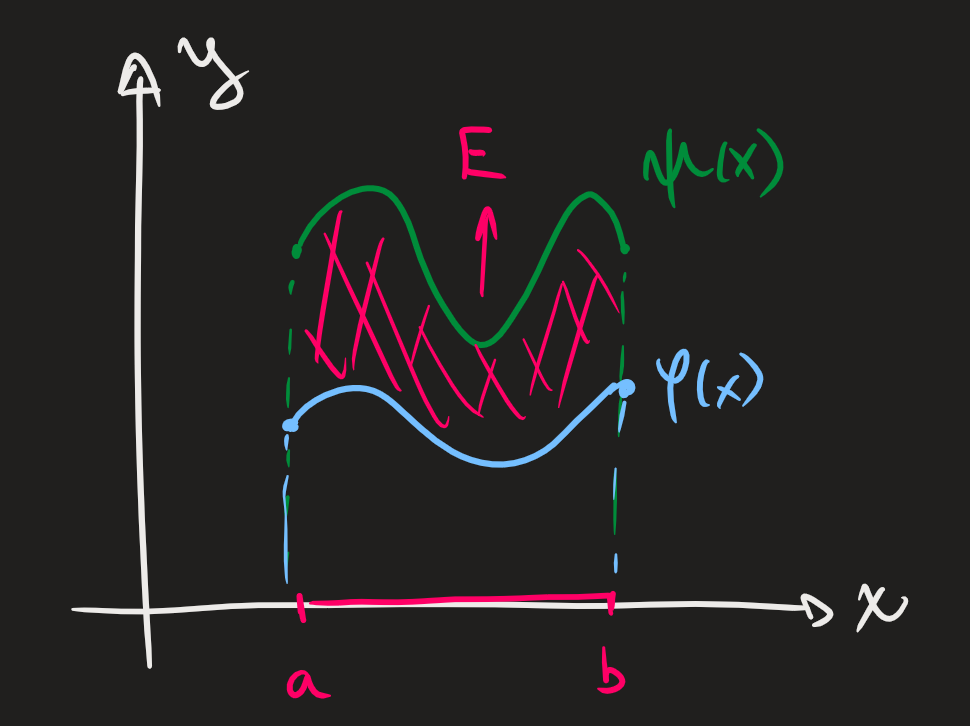 y
E
ψ(x)
φ(x)
x
a
b